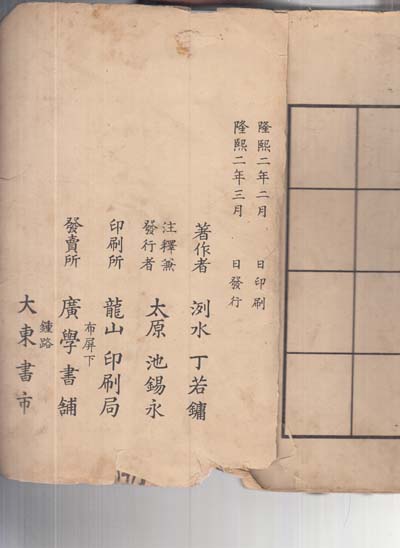 隆熙二年二月 日印刷
隆熙二年三月 日發行
著作者 洌水 丁若鏞
注釋兼
發行者 太原 池錫永
印刷所 龍山印刷局
布屏下
發賣所 廣學書舖
鍾路
大東書市